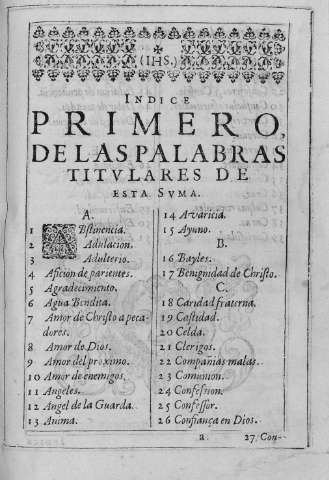 (IHS.)
INDICE
PRIMERO,
DE LAS PALABRAS
TITVLARES DE
ESTA SVMA.
A.
1 ABstinencia.
2 Adulacion.
3 Adulterio.
4 Aficion de parientes.
5 Agradecimiento.
6 Agua Bendita.
7 Amor de Christo a peca-
dores.
8 Amor de Dios.
9 Amor del proximo.
10 Amor de enemigos.
11 Angeles.
12 Angel de la Guarda.
13 Anima.
14 Avaricia.
15 Ayuno.
B.
16 Bayles.
17 Benignidad de Christo.
C.
18 Caridad fraterna.
19 Castidad.
20 Celda.
21 Clerigos.
22 Compañias malas.
23 Comunion.
24 Confession.
25 Confessor.
26 Confiança en Dios.
a. 27 Con-